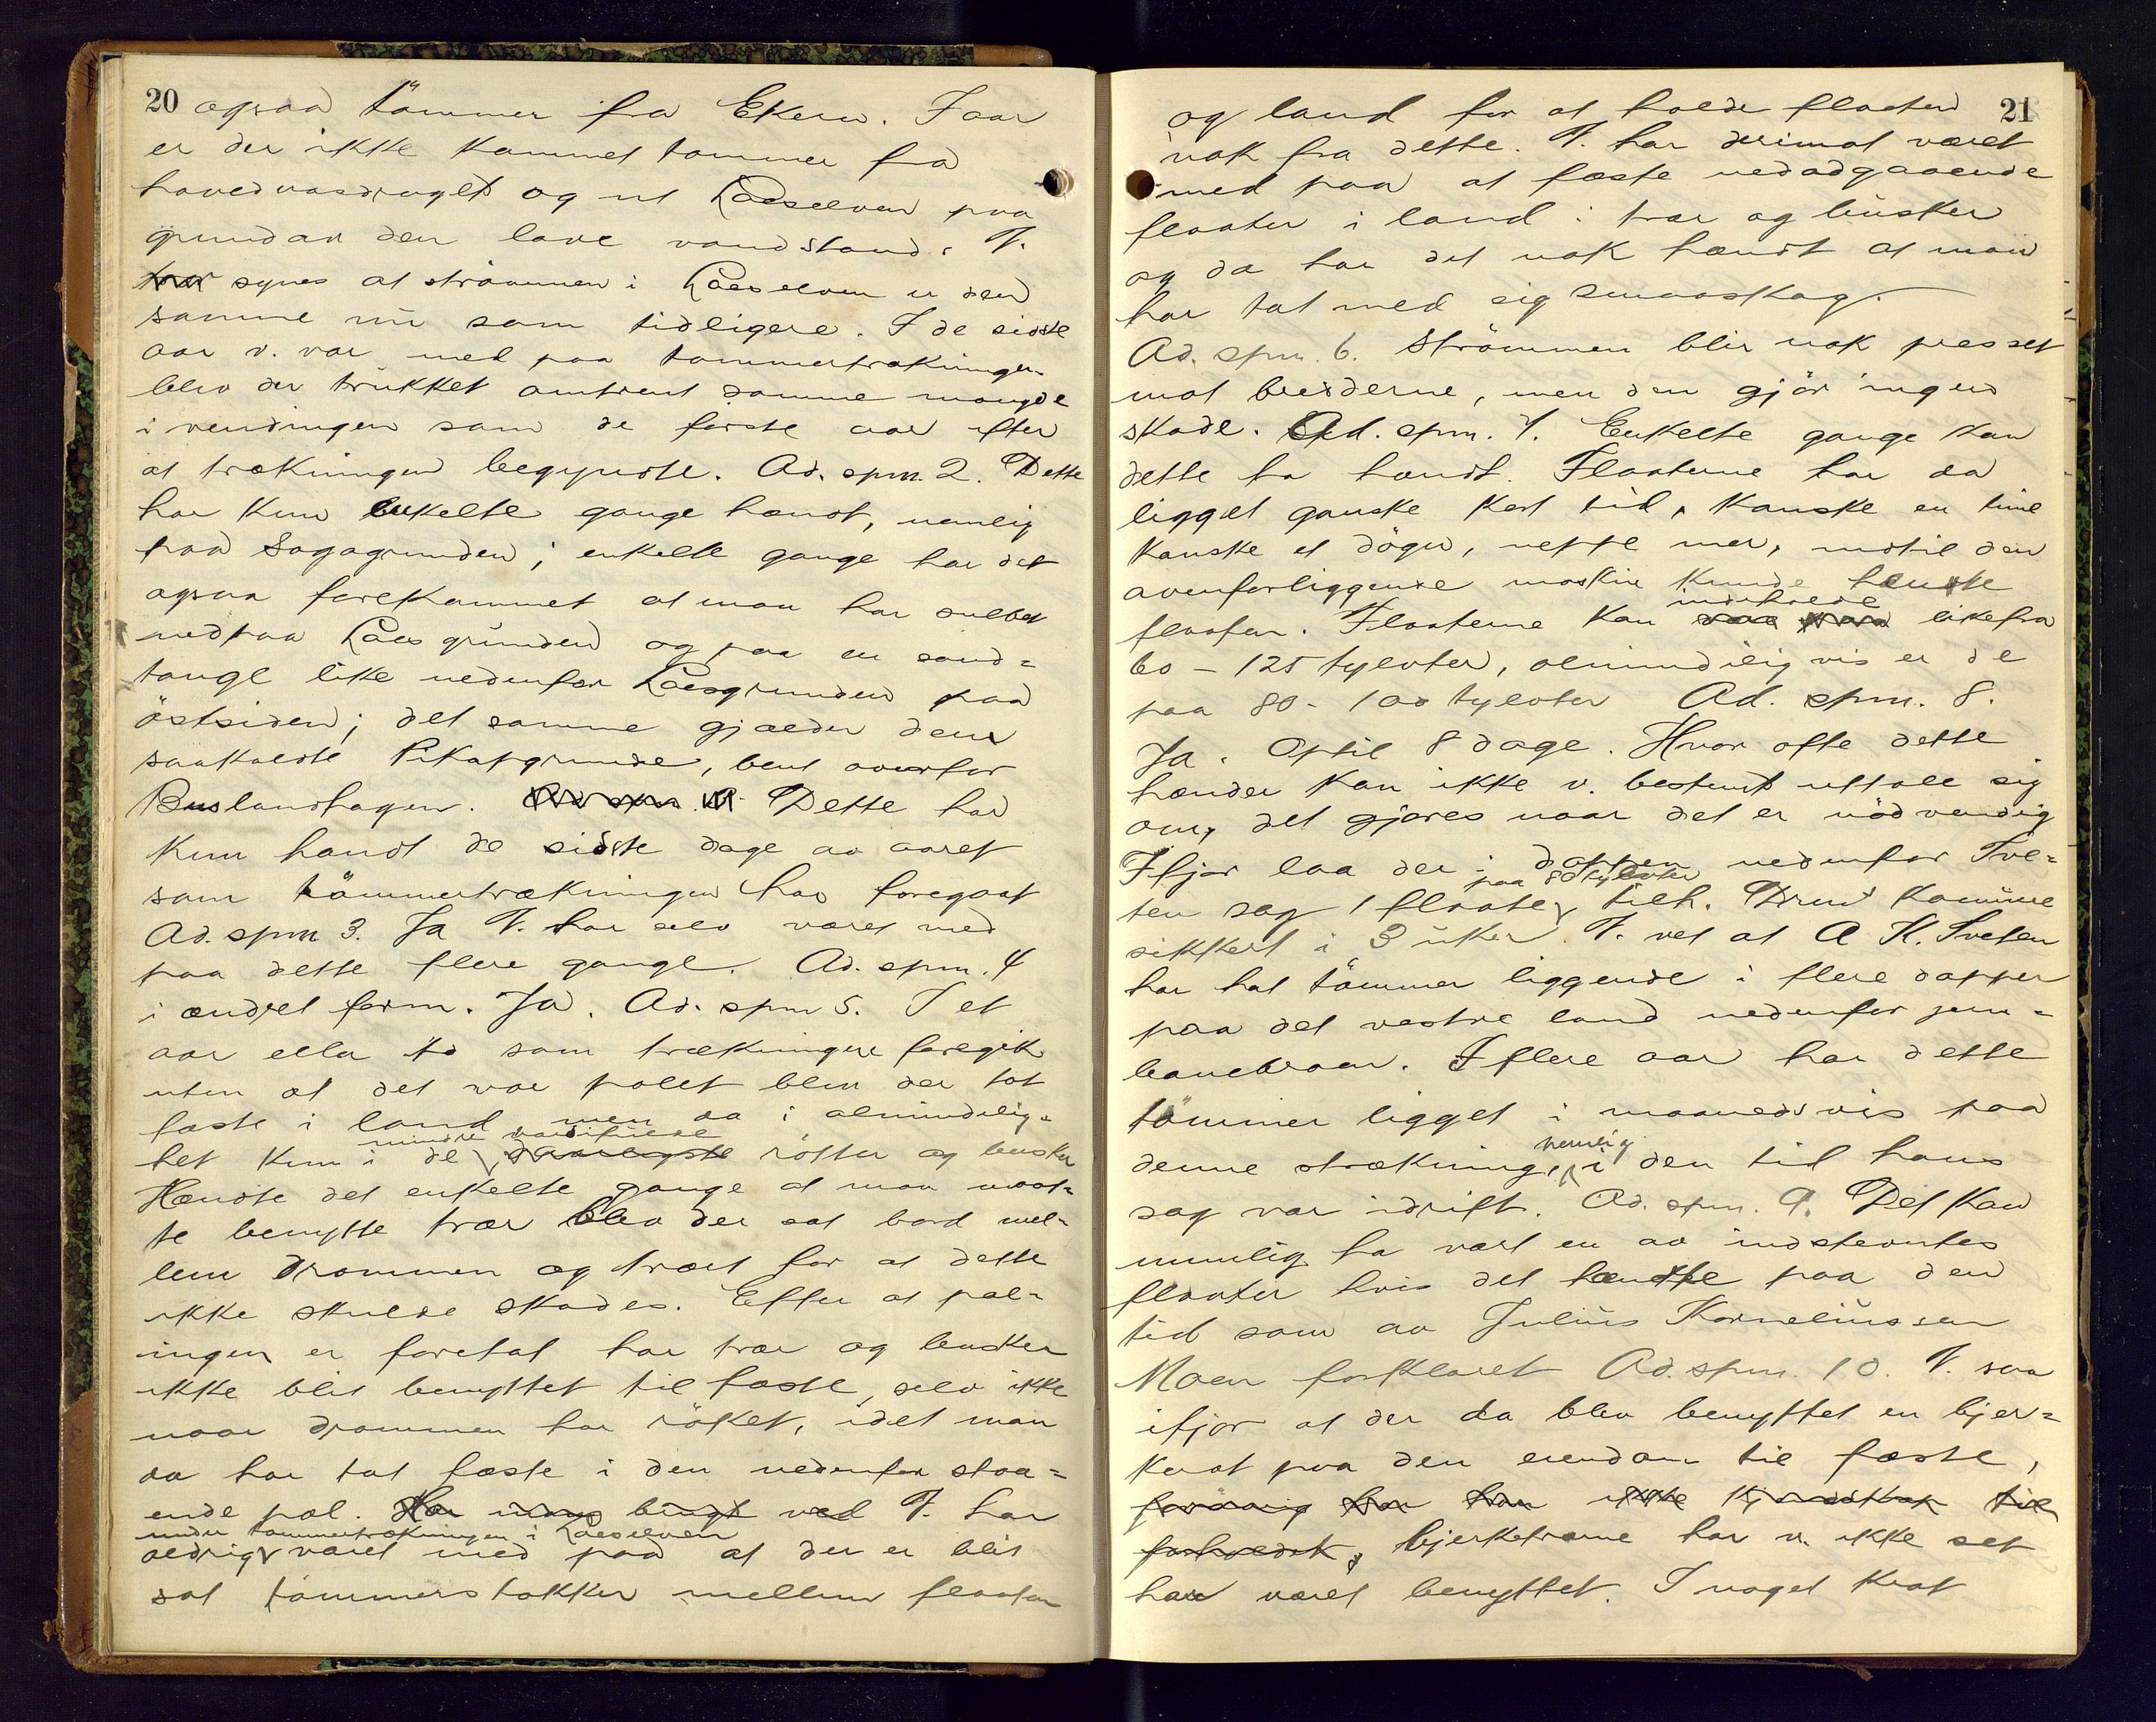 20 ogsaa tömmer fra Ekern. I aar
er der ikke kommet tømmer fra
hovedvasdraget og ut Laeselven paa
grund av den lave vandstand. V.
har synes at strömmen i Laeselven er den
samme nu som tidligere. I de sidste
aar v. var med paa tømmertrækningen
blev der trukket omtrent samme mængde
i vendingen som de første aar efter
at trækningen begyndte. Ad. spm. 2. Dette
har kun enkelte gange hændt, nemlig
paa Sagagrunden; enkelte gange har det
ogsaa forekommet at man har sullet
nedpaa Laesgrunden og paa en sand=
tange like nedenfor Laesgrunden paa
östsiden; det samme gjælder den
saakaldte Pikapgrunde, bent ovenfor
Buslandhagen. Ad spm. Dette har
kun hændt de sidste dage av aaret
som tömmertrækningen har foregaat
Ad. spm 3. Ja V. har selv været med
paa dette flere gange. Ad. spm. 4
i ændret form. Ja. Ad. spm 5. I et
aar eller to som trækningen foregik
uten at det var pælet blev der tat
fæste i land men da i almindelig=
mindre værdifulde
het kun i de daarligste rötter og busker
Hændte det enkelte gange at man maat=
te benytte trær blev der sat bord mel=
lem drammen og træet for at dette
ikke skulde skades. Efter at pæl=
ingen er foretat har trær og busker
ikke blit benyttet til fæste, selv ikke
naar drammen har röket, idet man
da har tat fæste i den nedenfor staa=
ende pæl. Har ved V. har
under tømmertrækningen i Laeselven
aldrig været med paa at der er blit
sat tømmerstokker mellem flaaten
og land for at holde flaaten 21
væk fra dette. V. har derimot været
med paa at fæste nedadgaaende
flaater i land i trær og busker
og da har det nok hændt at man
har tat med sig smaaskog.
Ad. spm. 6. Strömmen blir nok presset
mot bredderne, men den gjör ingen
skade. Ad. spm. 7. Enkelte gange kan
dette ha hændt. Flaaterne har da
ligget ganske kort tid, kanske en time
kanske et döger, neppe mer, indtil den
ovenforliggende maskin kunde hente
indeholde
flaaten. Flaaterne kan være paa likefra
60 - 125 tylvter, almindeligvis er de
paa 80 - 100 tylvter Ad. spm. 8.
Ja. Optil 8 dage. Hvor ofte dette
hænder kan ikke v. bestemt uttale sig
om, det gjøres naar det er nödvendig
Ifjor laa der i dappen nedenfor Sve=
paa 80 tylvter
ten sag 1 flaate tilh. Brun kommune
sikkert i 3 uker. V. vet at A K. Sveten
har hat tömmer liggende i flere dapper
paa det vestre land nedenfor jern=
banebroen. I flere aar har dette
tömmer ligget i maanedsvis paa
nemlig
denne strækning, i den tid hans
sag var i drift. Ad. spm. 9. Det kan
mulig ha vært en av indstevntes
flaater hvis det hændte paa den
tid som av Julius Korneliussen
Moen forklaret Ad. spm. 10. V. saa
ifjor at der da blev benyttet en bjer=
kerot paa den eiendom til fæste,
forövrig har han ikke kjendskap til
forholdet, bjerketrærne har v. ikke set
har været benyttet. I noget krat